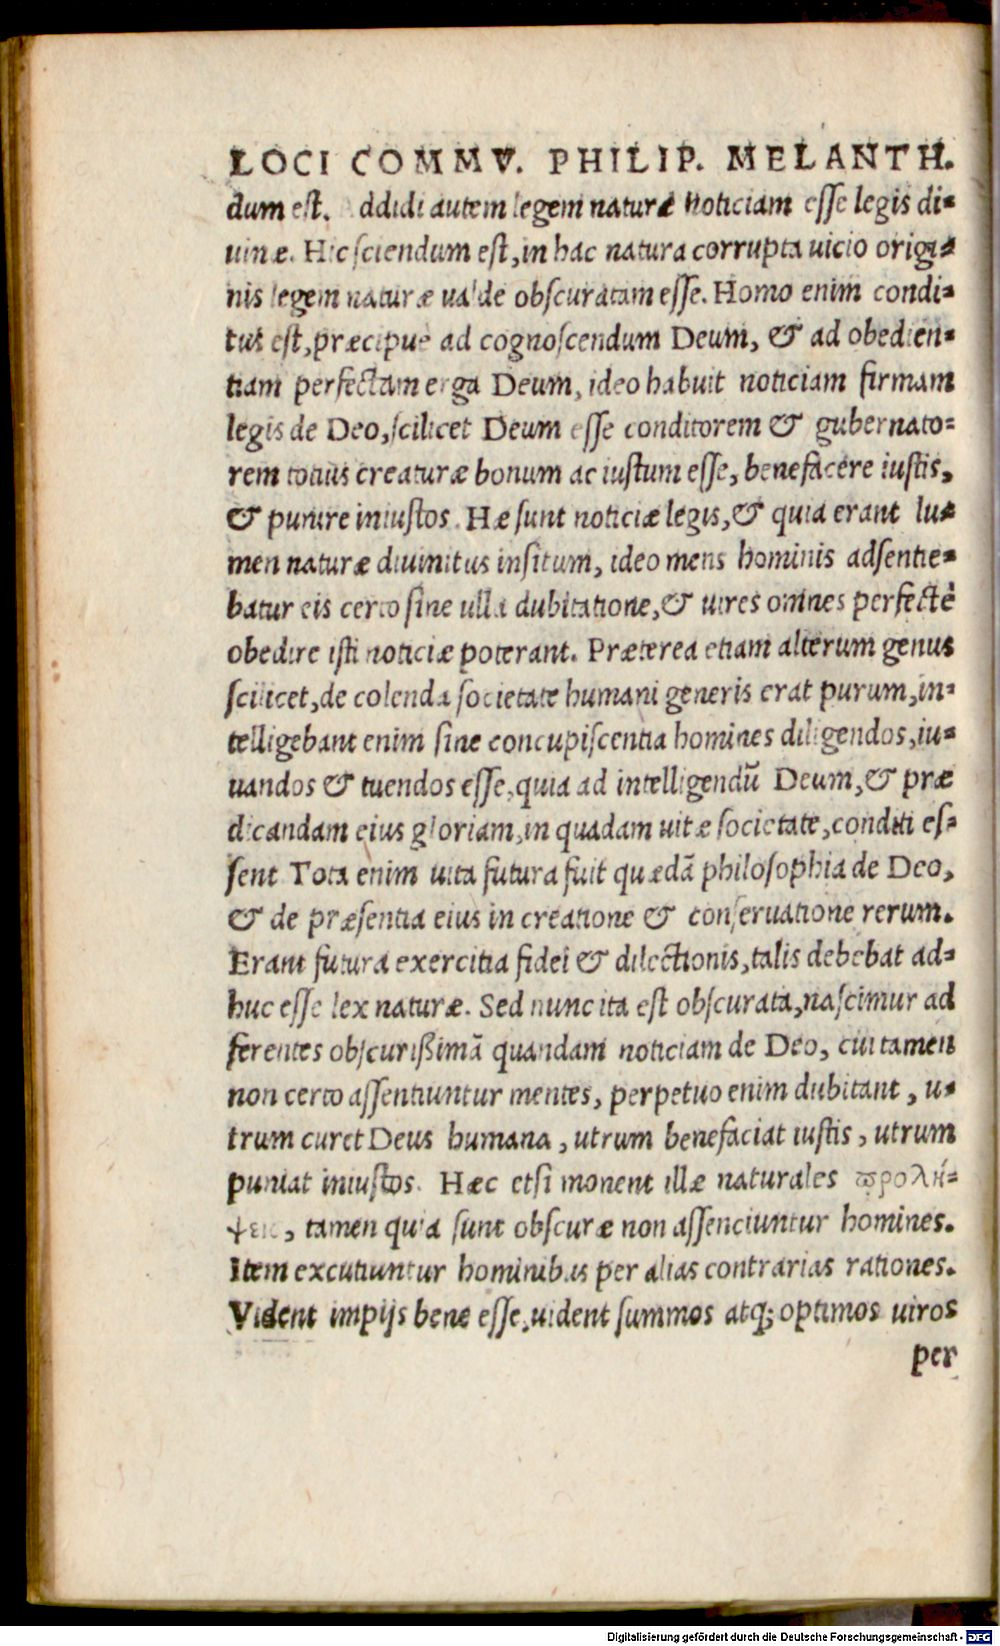 LOCI COMMV. PHILIP. MELANTH.
dum eſt. ddidi autem legem naturæ noticiam eſſe legis di-
uinæ. Hic ſciendum eſt, in hac natura corrupta uicio origi-
nis legem naturæ ualde obſcuratam eſſe. Homo enim condi-
tus eſt, præcipue ad cognoſcendum Deum, & ad obedien-
tiam perfectam erga Deum, ideo habuit noticiam firmam
legis de Deo, ſcilicet Deum eſſe conditorem & gubernato-
rem totius creaturæ bonum ac iuſtum eſſe, benefacere iuſtis,
& punire iniuſtos. Hæ ſunt noticiæ legis, & quia erant lu-
men naturæ diuinitus inſitum, ideo mens hominis adſentie-
batur eis certo ſine ulla dubitatione, & uires omnes perfectè
obedire iſti noticiæ poterant. Præterea etiam alterum genus
ſcilicet, de colenda ſocietate humani generis erat purum, in-
telligebant enim ſine concupiſcentia homines diligendos, iu-
uandos & tuendos eſſe, quia ad intelligendū Deum, & præ
dicandam eius gloriam, in quadam uitæ ſocietate, conditi eſ-
ſent Tota enim uita futura fuit quædā philoſophia de Deo,
& de præſentia eius in creatione & conſeruatione rerum.
Erant futura exercitia fidei & dilectionis, talis debebat ad-
huc eſſe lex naturæ. Sed nunc ita eſt obſcurata, naſcimur ad
ferentes obſcurißimā quandam noticiam de Deo, cui tamen
non certo aſſentiuntur mentes, perpetuo enim dubitant, u-
trum curet Deus humana, utrum benefaciat iuſtis, utrum
puniat iniuſtos. Hæc etſi monent illæ naturales ϖρολή-
ψεις, tamen quia ſunt obſcuræ non aſſenciuntur homines.
Item excutiuntur hominibus per alias contrarias rationes.
Vident impijs bene eſſe, uident ſummos atq; optimos uiros
per
Digitalisierung gefördert durch die Deutsche Forschungsgemeinschaft - DFG